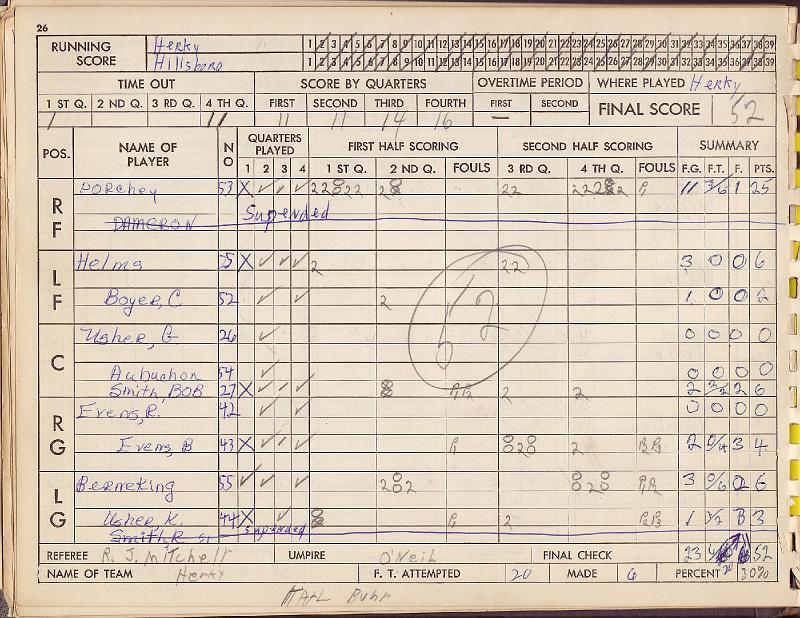 26
RUNNING SCORE Herky 1 2 3 4 5 6 7 8 9 10 11 12 13 14 15 16 17 18 19 20 21 22 23 24 25 26 27 28 29 30 31 32 33 34 35 36 37 38 39
Hillsboro 1 2 3 4 5 6 7 8 9 10 11 12 13 14 15 16 17 18 19 20 21 22 23 24 25 26 27 28 29 30 31 32 33 34 35 36 37 38 39
TIME OUT SCORE BY QUARTERS OVERTIME PERIOD WHERE PLAYED Herky
1 ST Q. 2 ND Q. 3 RD Q. 4 TH Q. FIRST SECOND THIRD FOURTH FIRST SECOND FINAL SCORE 52
1 11 11 11 14 16 —
POS. NAME OF PLAYER NO QUARTERS PLAYED FIRST HALF SCORING SECOND HALF SCORING SUMMARY
1 2 3 4 1 ST Q. 2 ND Q. FOULS 3 RD Q. 4 TH Q. FOULS F.G. F.T. F. PTS.
RF Porchey 53 X ✓ ✓ ✓ 22 22 2 22 P1 11 3/6 1 25
DAMERON Supended
LF Helms 25 X ✓ ✓ ✓ 2 22 3 0 0 6
Boyer, C 52 ✓ ✓ 2 1 0 0 2
52
C Usher, G 26 ✓ 0 0 0 0
Aubuchon 54 ✓ 0 0 0 0
Smith, BOB 27 X ✓ ✓ ✓ 8 P1P2 2 2 2 2/2 2 6
RG Evens, R. 42 ✓ ✓ 0 0 0 0
Evens, B 43 X ✓ ✓ ✓ P1 2 2 P2P3 2 0/4 3 4
LG Berneking 55 ✓ ✓ ✓ ✓ 2 2 P1P2 3 0/6 2 6
Usher, K. 44 X ✓ 8 P1 2 P2P3 1 1/2 3 3
Smith, R 51 Supended
REFEREE R. J. Mitchell UMPIRE O'Neil FINAL CHECK 23 52
NAME OF TEAM Herky F. T. ATTEMPTED 20 MADE 6 PERCENT 30%
Karl Buhr